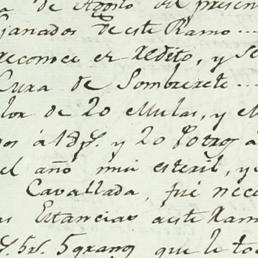 de Agosto del presen
Ganados de este Ramo...
reconoce el redito, y se
Cura de Sombrerete...
lor de 20 Mulas, y el
os á 18 ps. y 20 Potros á
el año mui esteril, y
Cavallada, fué nece
as Estancias a este Ram
5 granos que le to